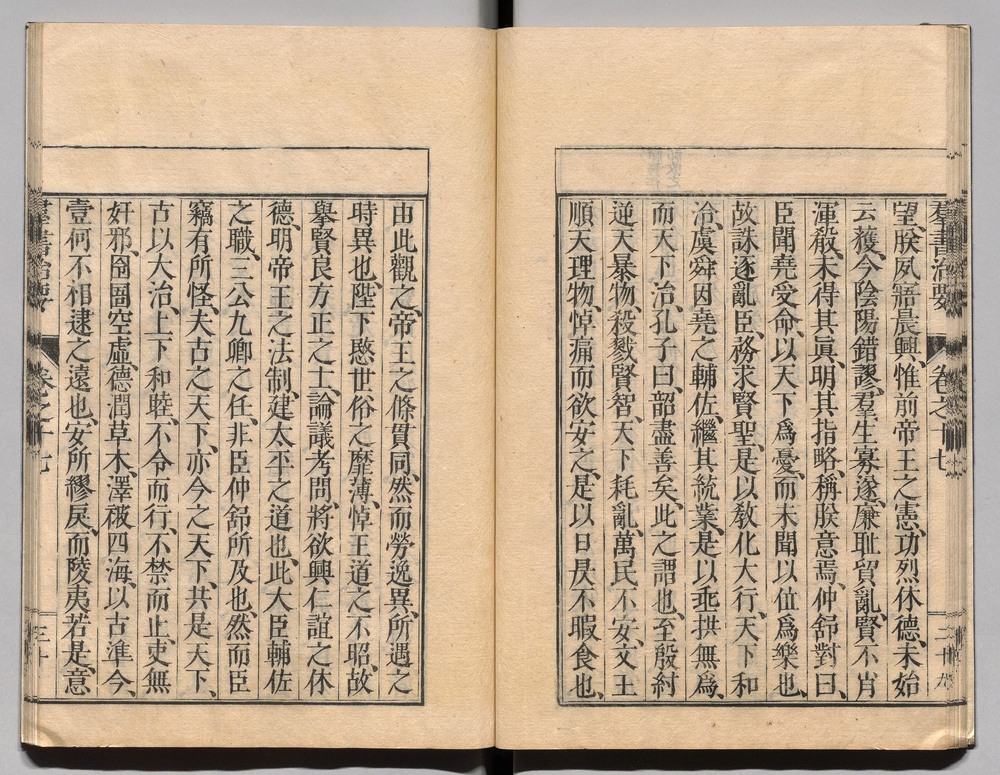 羣書治要 卷之十七 二十九
望、朕夙寤晨興、惟前帝王之憲、功烈休德、未始
云獲、今陰陽錯謬、羣生寡遂、廉耻貿亂、賢不肖
渾殽、未得其眞、明其指略、稱朕意焉、仲舒對曰、
臣聞堯受命、以天下爲憂、而未聞以位爲樂也、
故誅逐亂臣、務求賢聖、是以敎化大行、天下和
洽、虞舜因堯之輔佐、繼其統業、是以垂拱無爲、
而天下治、孔子曰、韶盡善矣、此之謂也、至殷紂
逆天暴物、殺戮賢智、天下耗亂、萬民不安、文王
順天理物、悼痛而欲安之、是以日昃不暇食也、
由此觀之、帝王之條貫同、然而勞逸異、所遇之
時異也、陛下愍世俗之靡薄、悼王道之不昭、故
擧賢良方正之士、論議考問、將欲興仁誼之休
德、明帝王之法制、建太平之道也、此大臣輔佐
之職、三公九卿之任、非臣仲舒所及也、然而臣
竊有所怪、夫古之天下、亦今之天下、共是天下、
古以大治、上下和睦、不令而行、不禁而止、吏無
奸邪、囹圄空虛、德潤草木、澤被四海、以古準今、
壹何不相逮之遠也、安所繆戾、而陵夷若是、意
羣書治要 卷之十七 三十